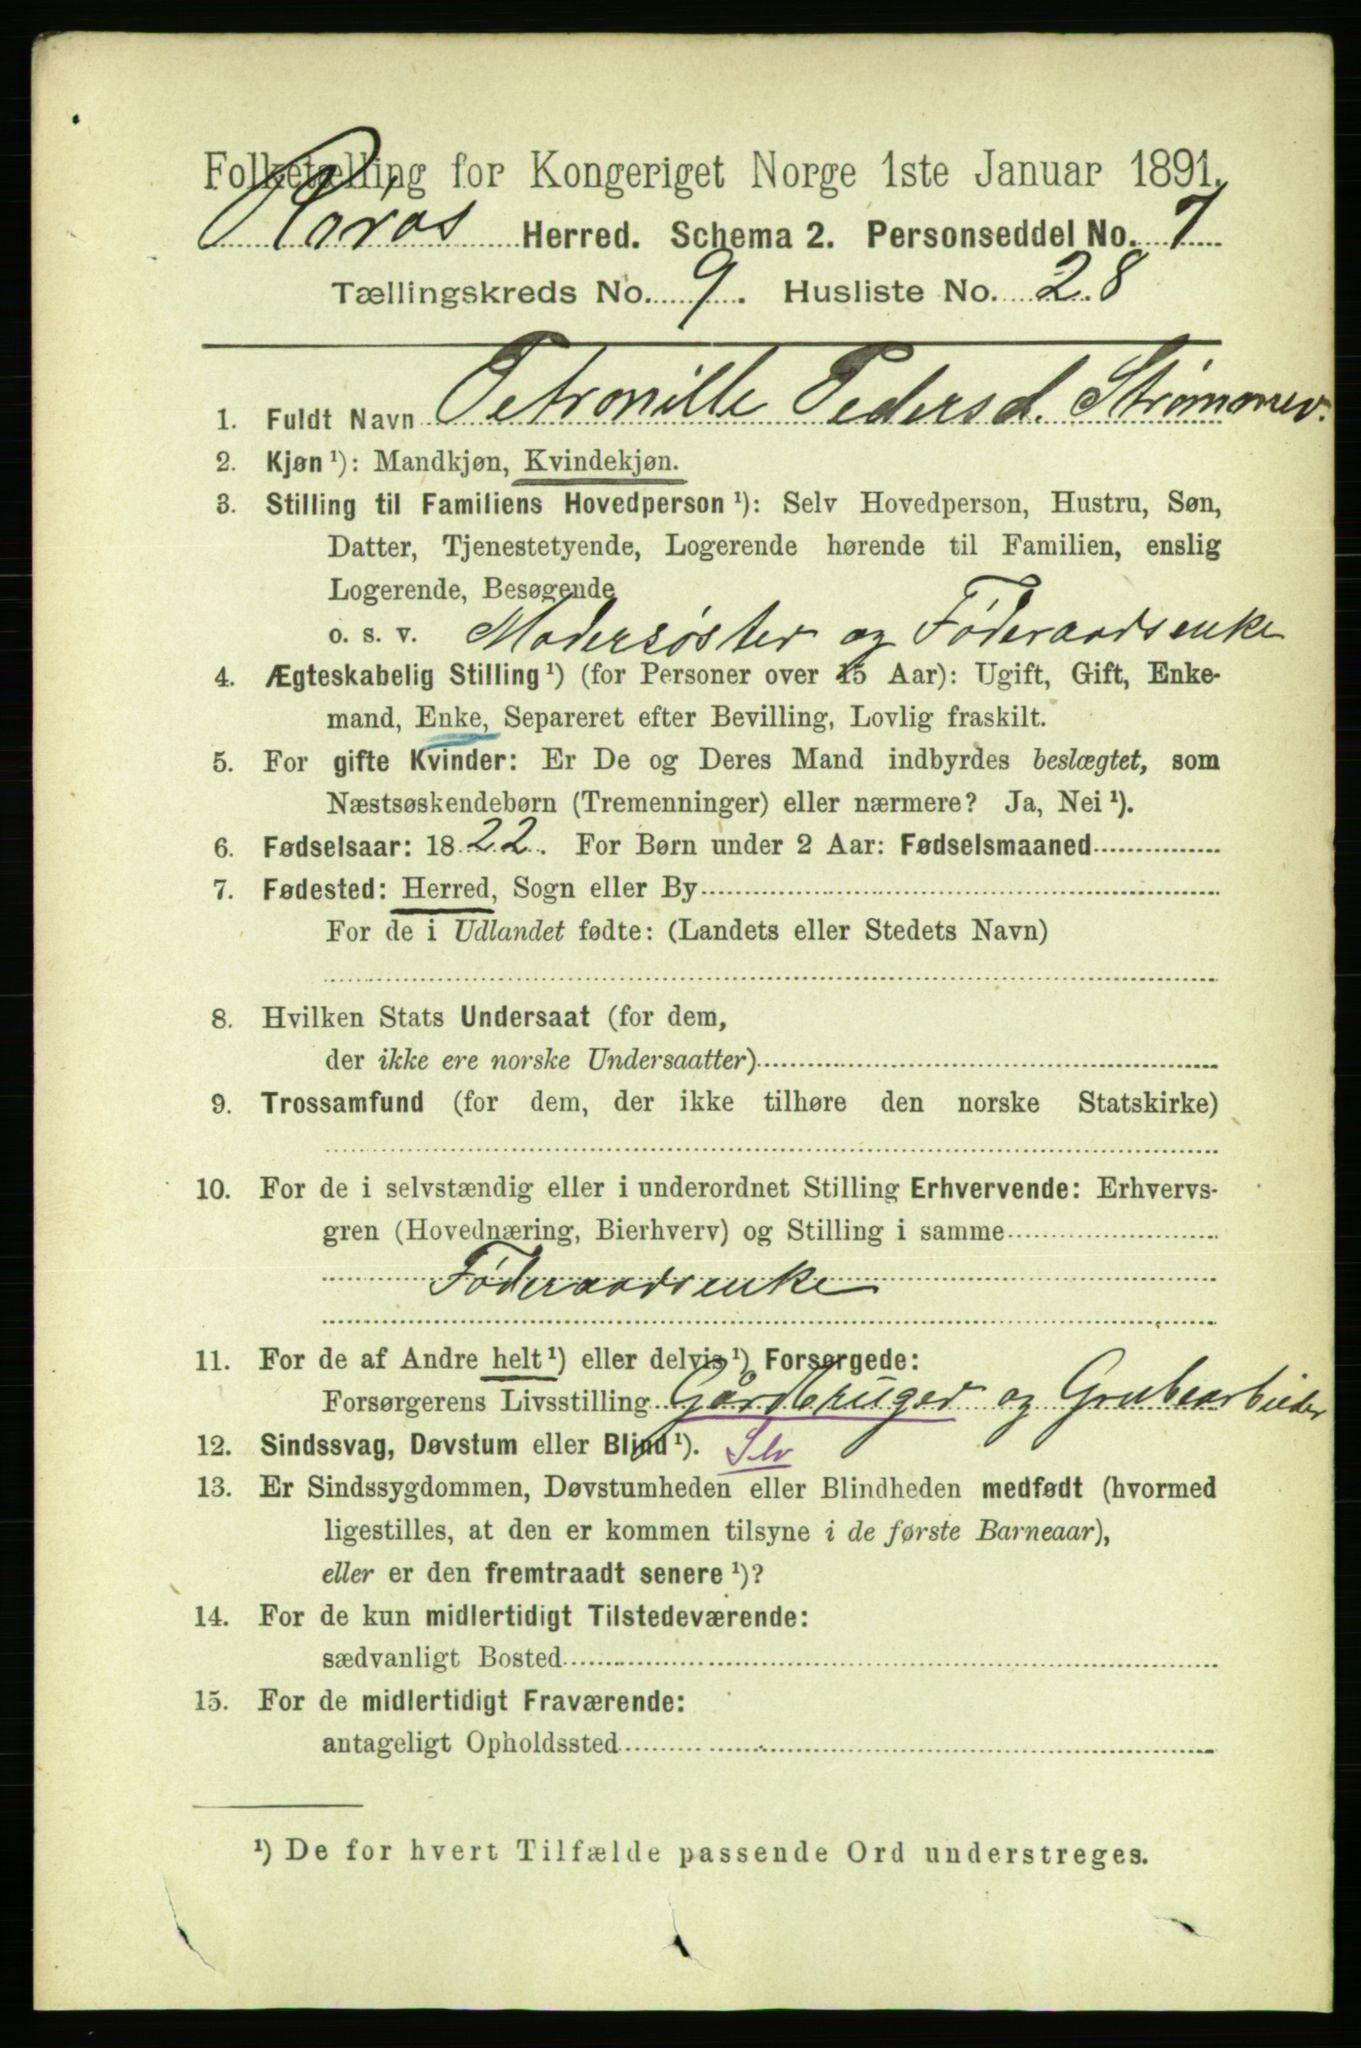 Folketælling for Kongeriget Norge 1ste Januar 1891.
Röros Herred. Schema 2. Personseddel No. 7
Tællingskreds No. 9. Husliste No. 28
1. Fuldt Navn Petronille Pedersd. Strømmev.
2. Kjøn ¹): Mandkjøn, Kvindekjøn.
3. Stilling til Familiens Hovedperson ¹): Selv Hovedperson, Hustru, Søn,
Datter, Tjenestetyende, Logerende hørende til Familien, enslig
Logerende, Besøgende
o. s. v. Modersøster og Føderaadsenke
4. Ægteskabelig Stilling ¹) (for Personer over 15 Aar): Ugift, Gift, Enke-
mand, Enke, Separeret efter Bevilling, Lovlig fraskilt.
5. For gifte Kvinder: Er De og Deres Mand indbyrdes beslægtet, som
Næstsøskendebørn (Tremenninger) eller nærmere? Ja, Nei ¹).
6. Fødselsaar: 1822. For Børn under 2 Aar: Fødselsmaaned
7. Fødested: Herred, Sogn eller By
For de i Udlandet fødte: (Landets eller Stedets Navn)
8. Hvilken Stats Undersaat (for dem,
der ikke ere norske Undersaatter)
9. Trossamfund (for dem, der ikke tilhøre den norske Statskirke)
10. For de i selvstændig eller i underordnet Stilling Erhvervende: Erhvervs-
gren (Hovednæring, Bierhverv) og Stilling i samme
Føderaadsenke
11. For de af Andre helt ¹) eller delvis ¹) Forsørgede:
Forsørgerens Livsstilling Gårdbruger og Grubearbeider
12. Sindssvag, Døvstum eller Blind ¹). Slv
13. Er Sindssygdommen, Døvstumheden eller Blindheden medfødt (hvormed
ligestilles, at den er kommen tilsyne i de første Barneaar),
eller er den fremtraadt senere ¹)?
14. For de kun midlertidigt Tilstedeværende:
sædvanligt Bosted
15. For de midlertidigt Fraværende:
antageligt Opholdssted
¹) De for hvert Tilfælde passende Ord understreges.